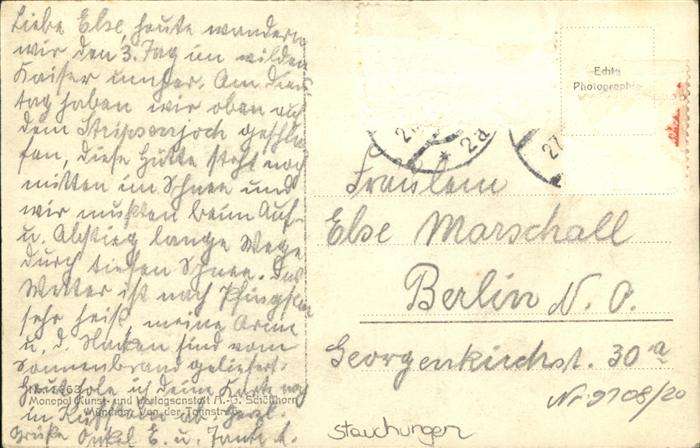 Liebe Else, heute wandern
wir den 3. Tag im wilden
Kaiser umher. Am Diens
tag haben wir oben auf
dem Stripsenjoch geschla
fen, diese Hütte steht noch
mitten im Schnee und
wir mußten beim Auf-
u. Abstieg lange Wege
durch tiefen Schnee. Das
Wetter ist nach Pfingsten
sehr heiß meine Arme
u. d. Nacken sind vom
Sonnenbrand geliefert.
Heut hole ich deine Karte noch
in Kufstein ab. Herzl.
Grüße Onkel E. u. Tante A.
Monopol Kunst- und Verlagsanstalt A.-G. Schöllhorn
München, Von der Tannstr.
Echte
Photographie
27
2a
27
Fräulein
Else Marschall
Berlin N. O.
Georgenkirchst. 30 a
Nr 9708/20
stauchungen